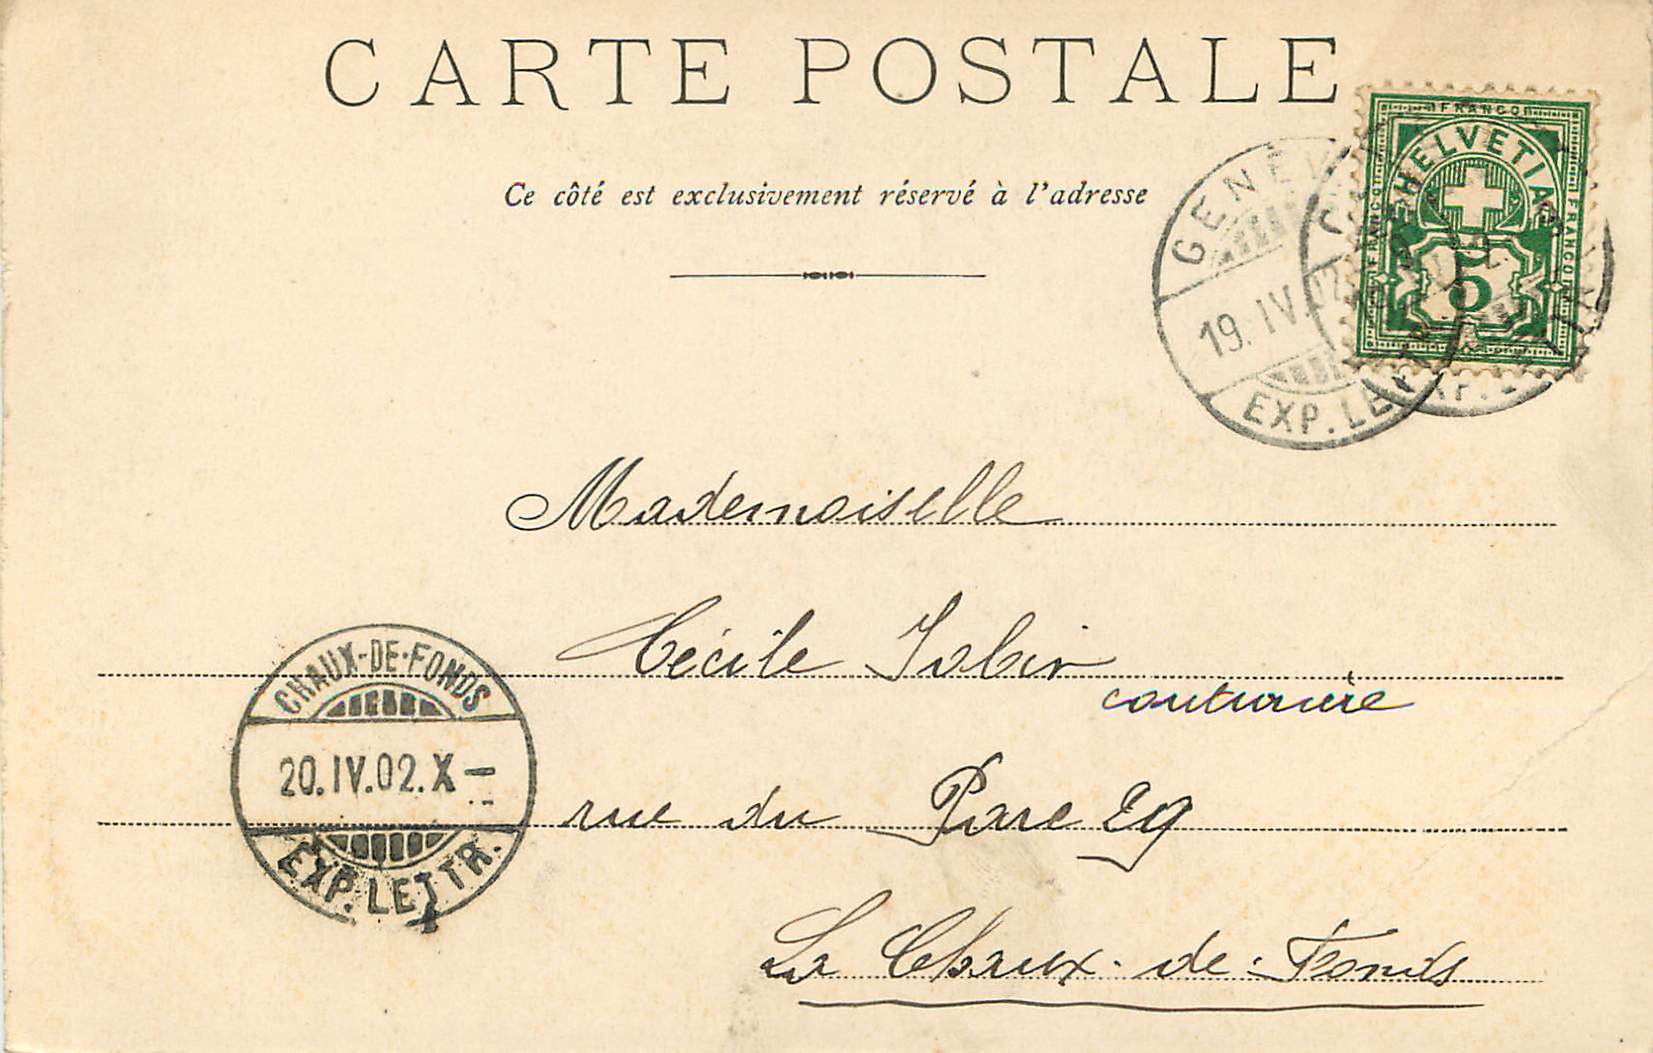 CARTE POSTALE
Ce côté est exclusivement réservé à l'adresse
FRANCO
HELVETIA
FRANCO
FRANCO
5
GENÈV
19.IV.02
EXP. LE
Mademoiselle
Cécile Jobin
couturière
rue du Parc 29
La Chaux-de-Fonds
CHAUX-DE-FONDS
20.IV.02.X-
EXP. LETTR.